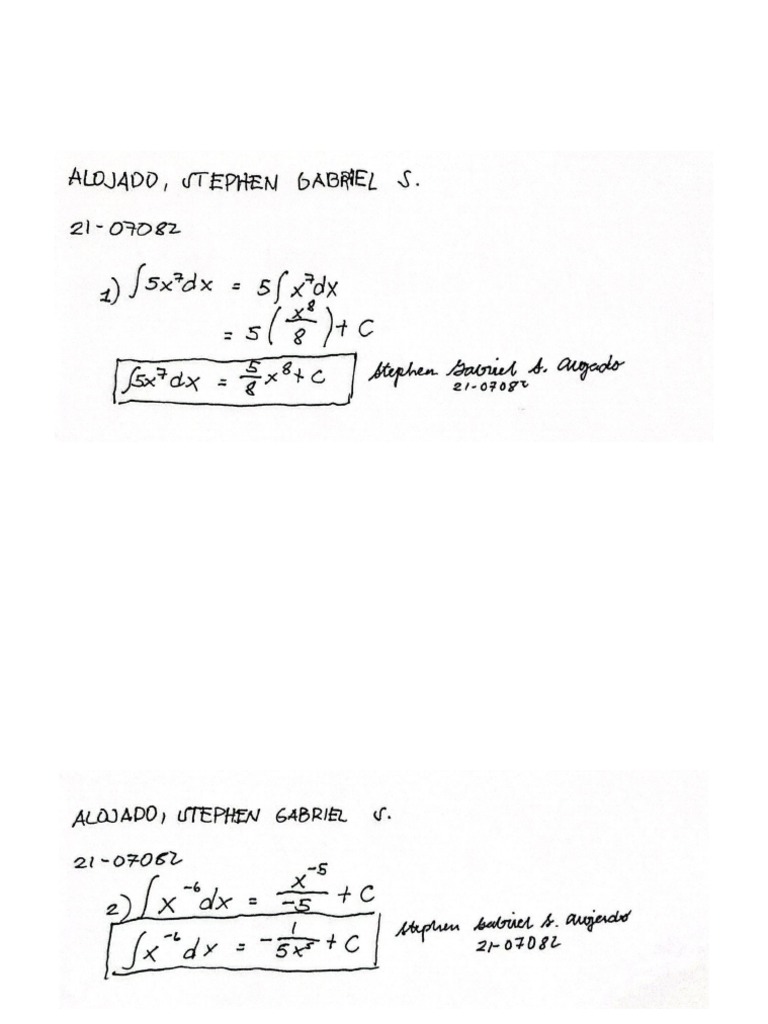 ALOJADO, STEPHEN GABRIEL S.
21-07082
1) ∫5x⁷dx = 5∫x⁷dx
= 5(x⁸/8) + C
∫5x⁷dx = 5/8 x⁸ + C
Stephen Gabriel S. Alojado
21-07082
ALOJADO, STEPHEN GABRIEL S.
21-07082
2) ∫x⁻⁶dx = x⁻⁵/-5 + C
∫x⁻⁶dx = -1/5x⁵ + C
Stephen Gabriel S. Alojado
21-07082